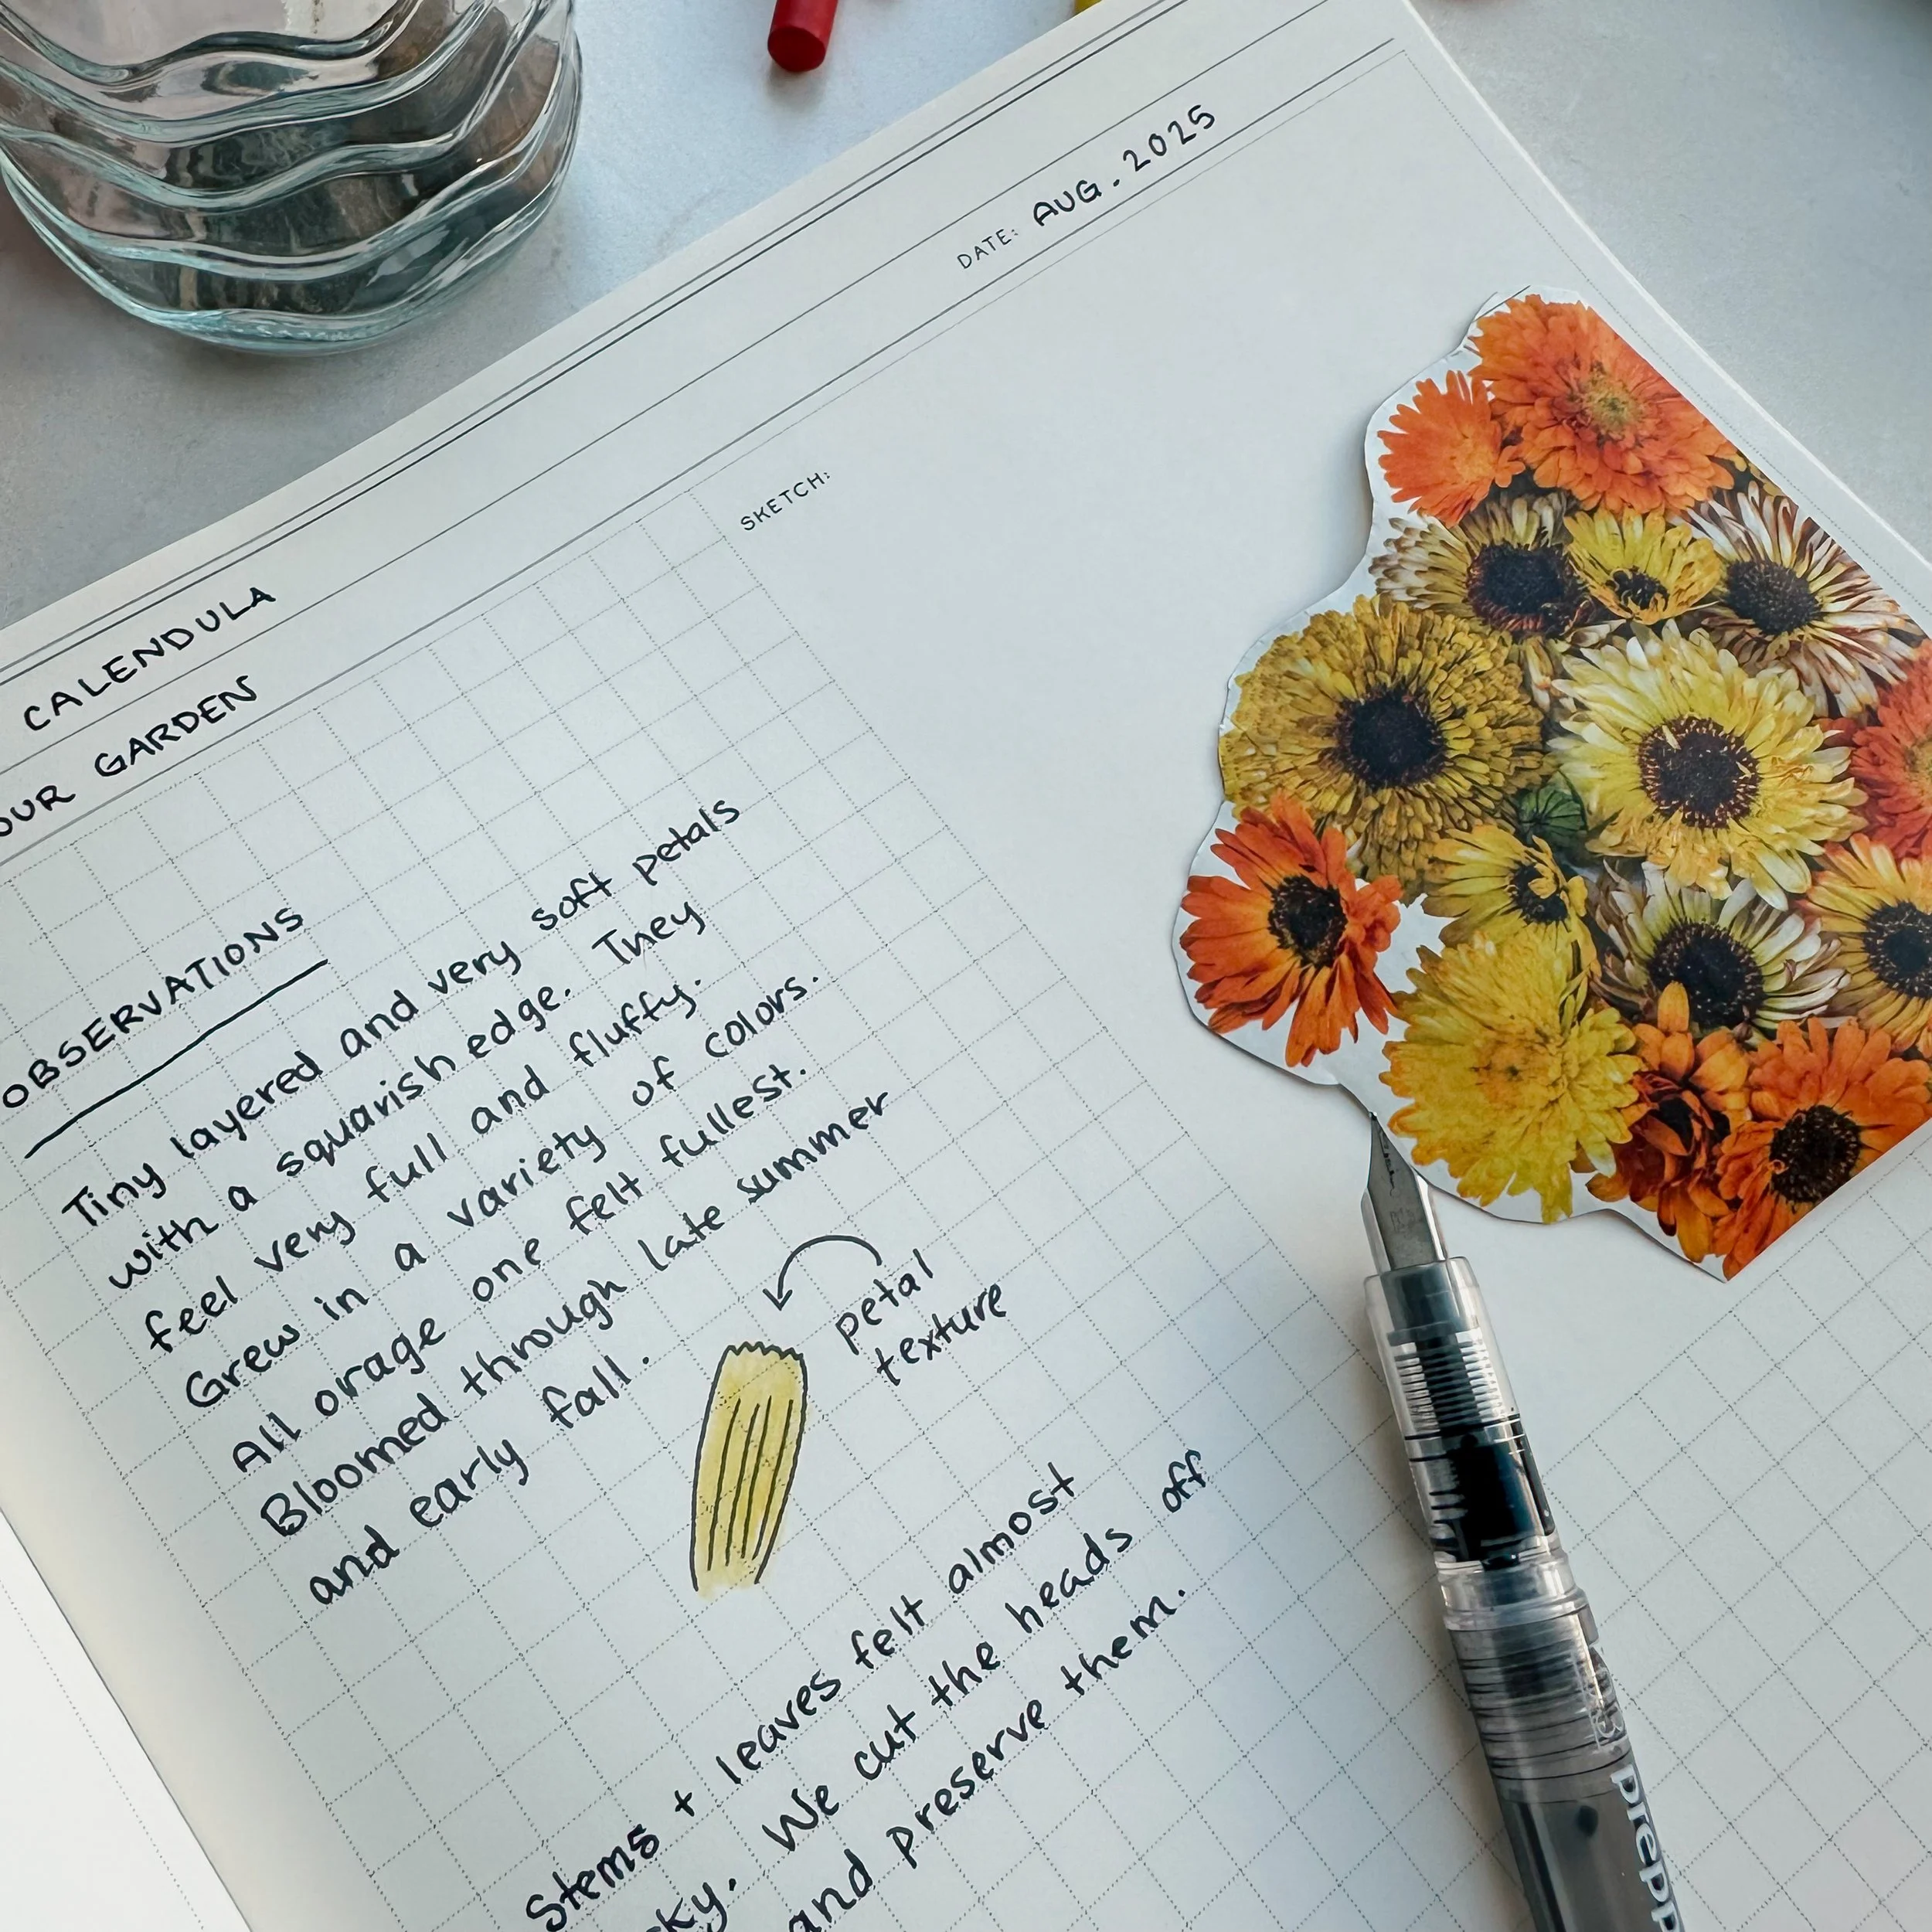 DATE: AUG. 2025
CALENDULA
OUR GARDEN
SKETCH:
OBSERVATIONS
Tiny layered and very soft petals
with a squarish edge. They
feel very full and fluffy.
Grew in a variety of colors.
All orage one felt fullest.
Bloomed through late summer
and early fall.
petal
texture
Stems + leaves felt almost
We cut the heads off
and preserve them.